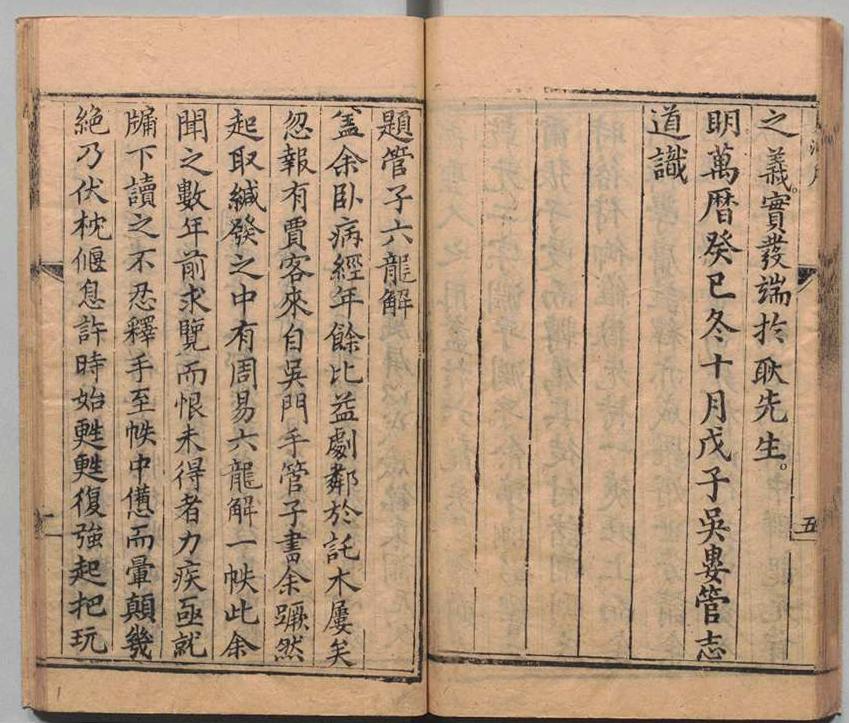 之義。實發端於耿先生。
明萬曆癸巳冬十月戊子吳婁管志
道識
五
題管子六龍解
盖余卧病經年餘比益劇鄰於託木屢矣
忽報有賈客來自吳門手管子書余蹶然
起取緘發之中有周易六龍解一帙此余
聞之數年前求覽而恨未得者力疾亟就
牖下讀之不忍釋手至帙中憊而暈顛幾
絶乃伏枕偃息許時始甦甦復強起把玩